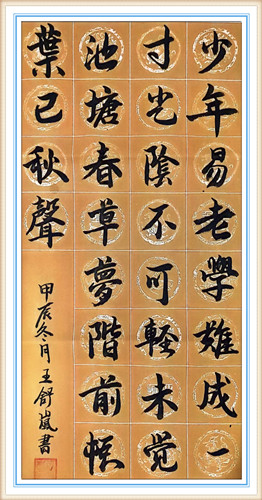 少年易老學難成一
寸光陰不可軽未觉
池塘春草夢階前梧
葉已秋聲
甲辰冬月王舒嵐書